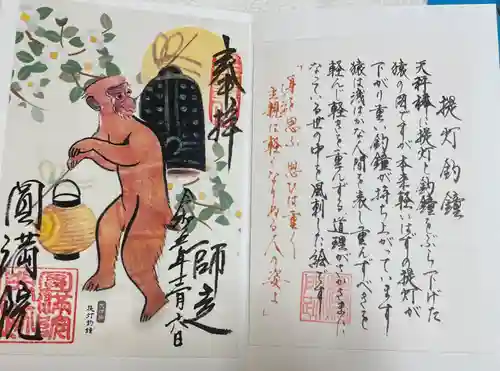 提灯釣鐘
天秤棒に提灯と釣鐘をぶら下げた
猿の図ですが本来軽いはずの提灯が
下がり重い釣鐘が持ち上がっています
猿は浅はかな人間を表し重んずべきを
軽んじ軽きを重んずる道理がさかさまに
なっている世の中を風刺した絵です
「身を思ふ 思ひは重く
主親は軽くなりぬる人の姿よ」
奉拝
師走
圓満院
提灯釣鐘